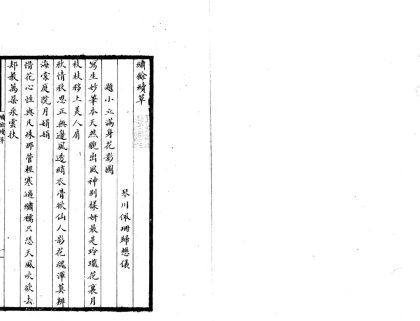 繡餘續草
琴川佩珊歸懋儀
題小立滿身花影圖
寫生妙筆本天然脫出風神別樣妍最是玲瓏花裏月
枝枝移上美人肩
秋情秋思正無邊風透綃衣骨欲仙人影花魂渾莫辨
海棠庭院月娟娟
惜花心性與凡殊那管輕寒逼繡襦只恐天風吹欲去
却教萬朶采雲扶